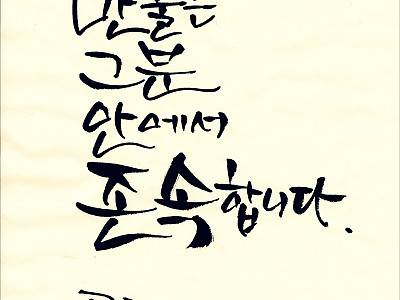 만물은
그분
안에서
존속합니다.